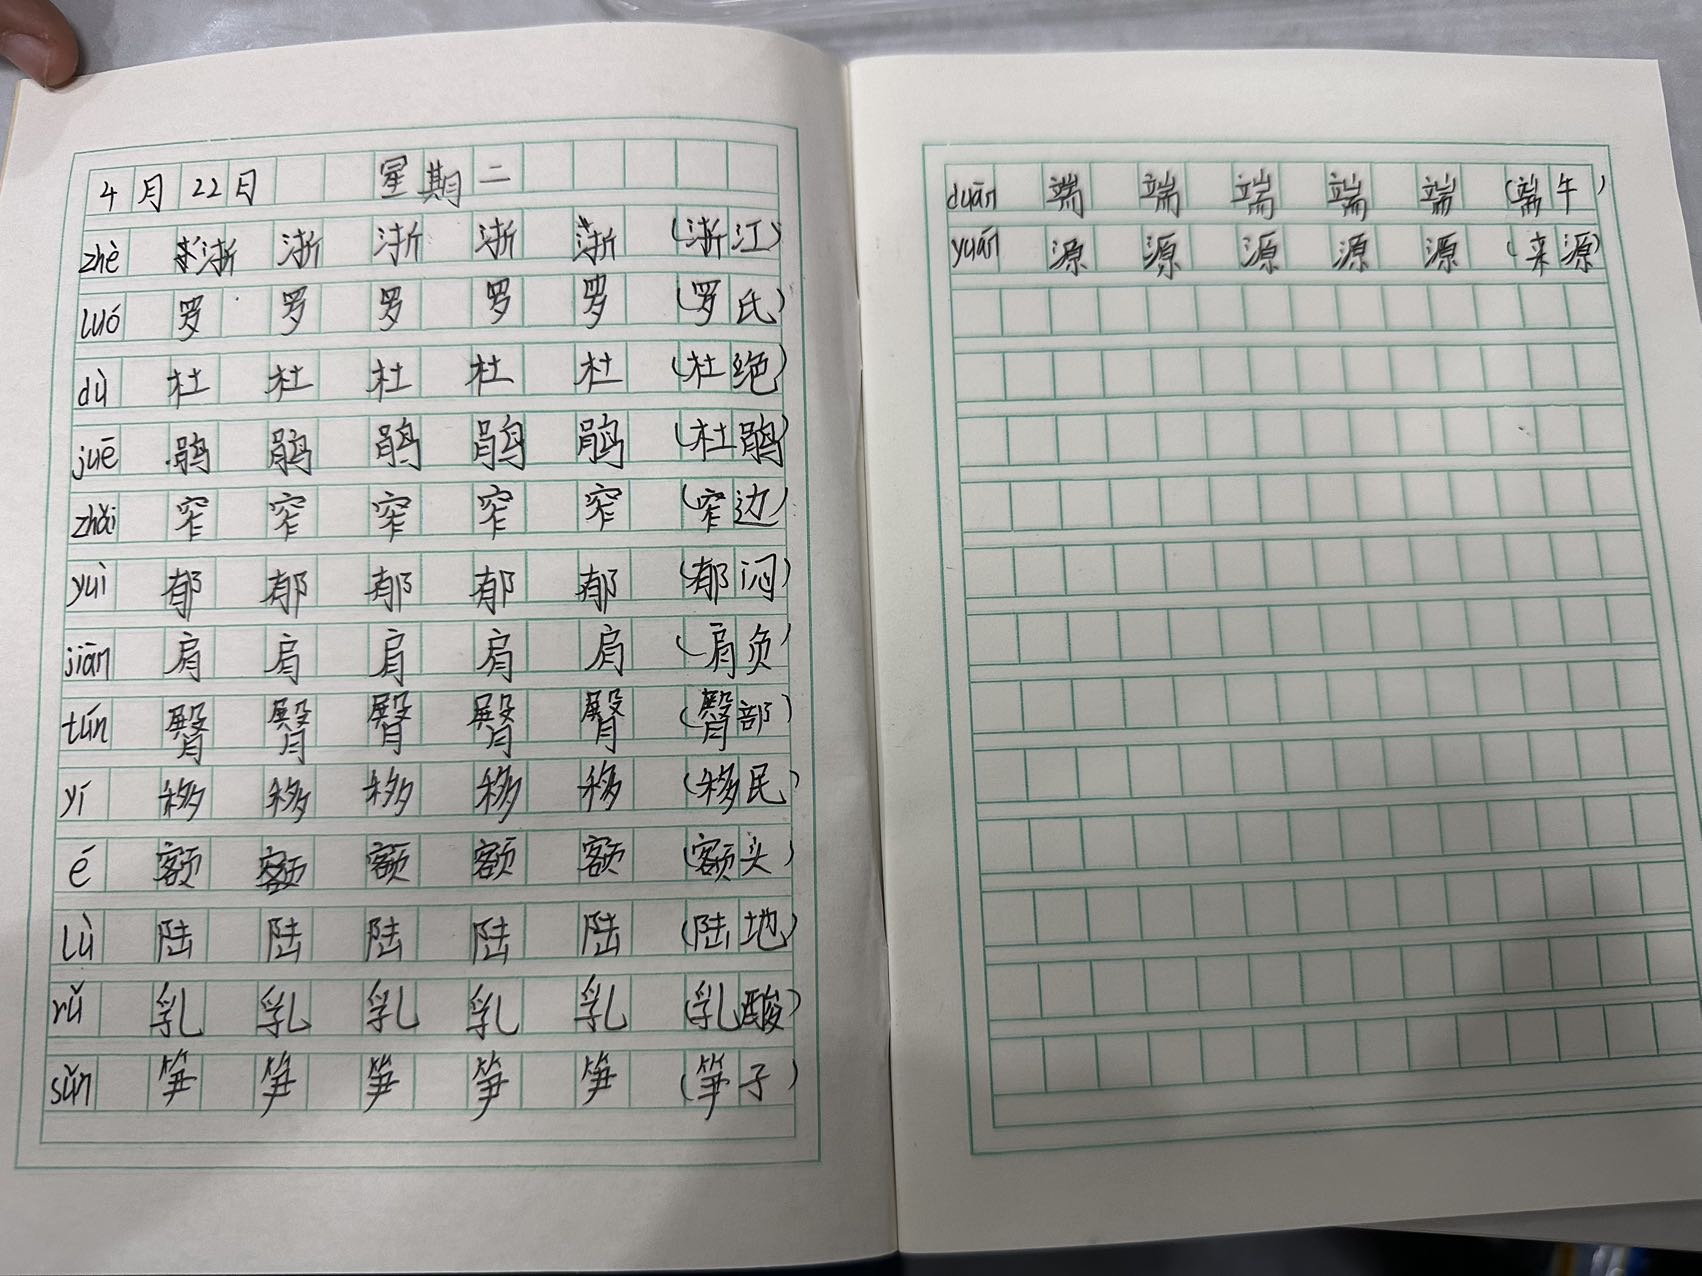 4月22日 星期二
zhè 浙 浙 浙 浙 浙 (浙江)
luó 罗 罗 罗 罗 罗 (罗氏)
dù 杜 杜 杜 杜 杜 (杜绝)
juē 鹃 鹃 鹃 鹃 鹃 (杜鹃)
zhǎi 窄 窄 窄 窄 窄 (窄边)
yuì 郁 郁 郁 郁 郁 (郁闷)
jiān 肩 肩 肩 肩 肩 (肩负)
tún 臀 臀 臀 臀 臀 (臀部)
yí 移 移 移 移 移 (移民)
é 额 额 额 额 额 (额头)
lù 陆 陆 陆 陆 陆 (陆地)
rǔ 乳 乳 乳 乳 乳 (乳酸)
sǔn 笋 笋 笋 笋 笋 (笋子)
duān 端 端 端 端 端 (端午)
yuán 源 源 源 源 源 (来源)